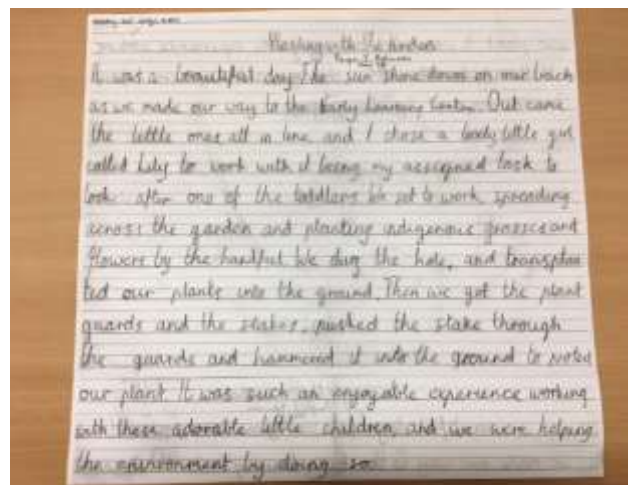 Planting with the
It was a beautiful day. The sun shone down on our
as we made our way to the Early Learning Centre. Out came
the little ones all in line and I chose a lovely little girl
called Lily to work with it being my assigned task to
look after one of the toddlers. We set to work, spreading
across the garden and planting indigenous grasses and
flowers by the handful. We dug the hole, and transplan
ted our plants into the ground. Then we got the plant
guards and the stakes, pushed the stake through
the guards and hammered it into the ground to
our plant. It was such an enjoyable experience working
with these adorable little children, and we were helping
the environment by doing so